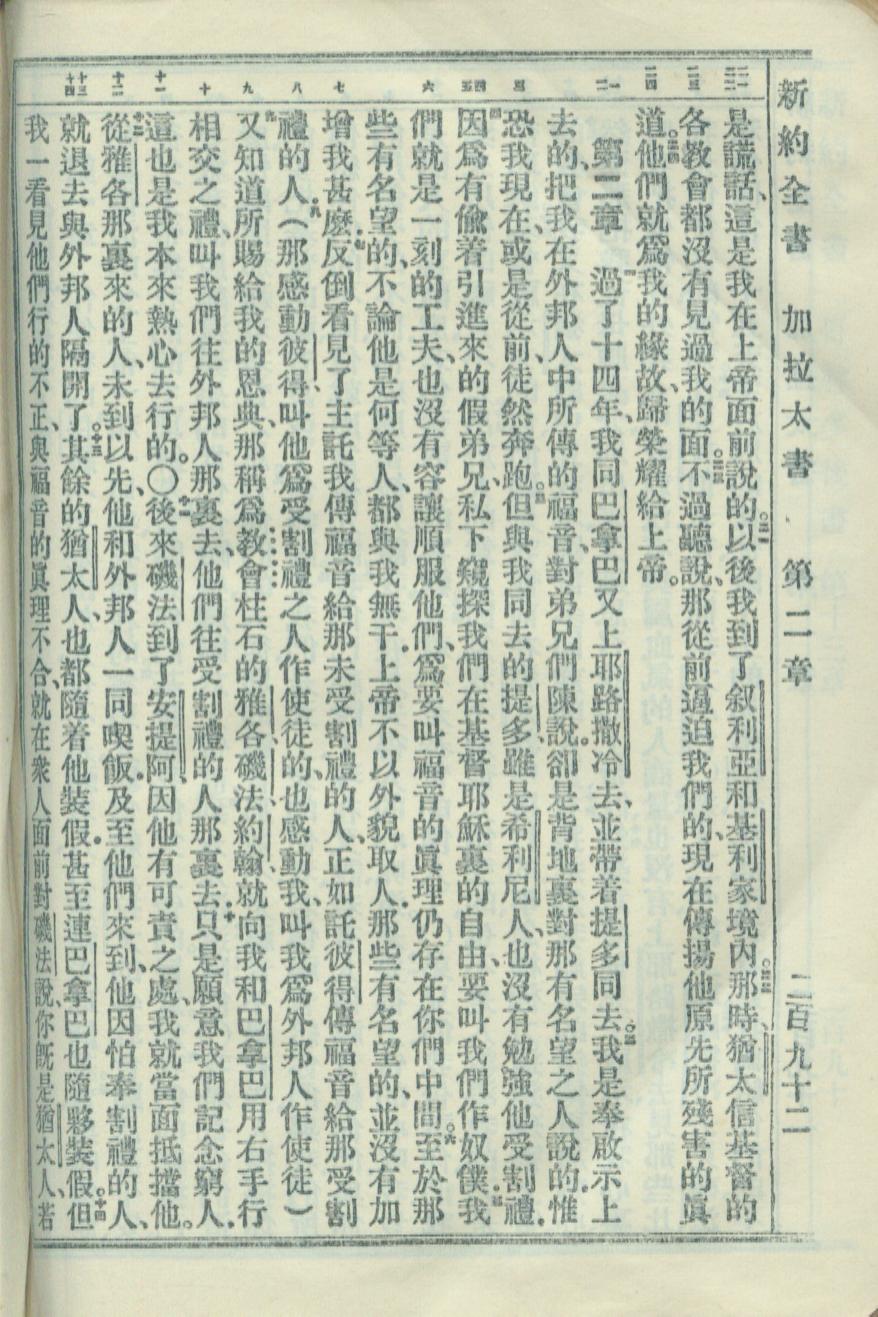 新約全書 加拉太書 第二章 二百九十二
是謊話、這是我在上帝面前說的。以後我到了叙利亞和基利家境內。那時、猶太信基督的
各教會都沒有見過我的面。不過聽說、那從前逼迫我們的、現在傳揚他原先所殘害的眞
道。他們就爲我的緣故、歸榮耀給上帝。
第二章 過了十四年、我同巴拿巴又上耶路撒冷去、並帶着提多同去。我是奉啟示上
去的、把我在外邦人中所傳的福音、對弟兄們陳說。卻是背地裏對那有名望之人說的.惟
恐我現在、或是從前、徒然奔跑。但與我同去的提多、雖是希利尼人、也沒有勉強他受割禮.
因爲有偸着引進來的假弟兄、私下窺探我們在基督耶穌裏的自由、要叫我們作奴僕.我
們就是一刻的工夫、也沒有容讓順服他們、爲要叫福音的眞理仍存在你們中間。至於那
些有名望的、不論他是何等人、都與我無干.上帝不以外貌取人.那些有名望的、並沒有加
增我甚麼.反倒看見了主託我傳福音給那未受割禮的人、正如託彼得傳福音給那受割
禮的人（那感動彼得、叫他爲受割禮之人作使徒的、也感動我、叫我爲外邦人作使徒）
又知道所賜給我的恩典、那稱爲教會柱石的雅各、磯法、約翰、就向我和巴拿巴用右手行
相交之禮、叫我們往外邦人那裏去、他們往受割禮的人那裏去.只是願意我們記念窮人.
這也是我本來熱心去行的。〇後來磯法到了安提阿、因他有可責之處、我就當面抵擋他。
從雅各那裏來的人、未到以先、他和外邦人一同喫飯.及至他們來到、他因怕奉割禮的人、
就退去與外邦人隔開了。其餘的猶太人、也都隨着他裝假.甚至連巴拿巴也隨夥裝假。但
我一看見他們行的不正、與福音的眞理不合、就在衆人面前對磯法說、你旣是猶太人、若